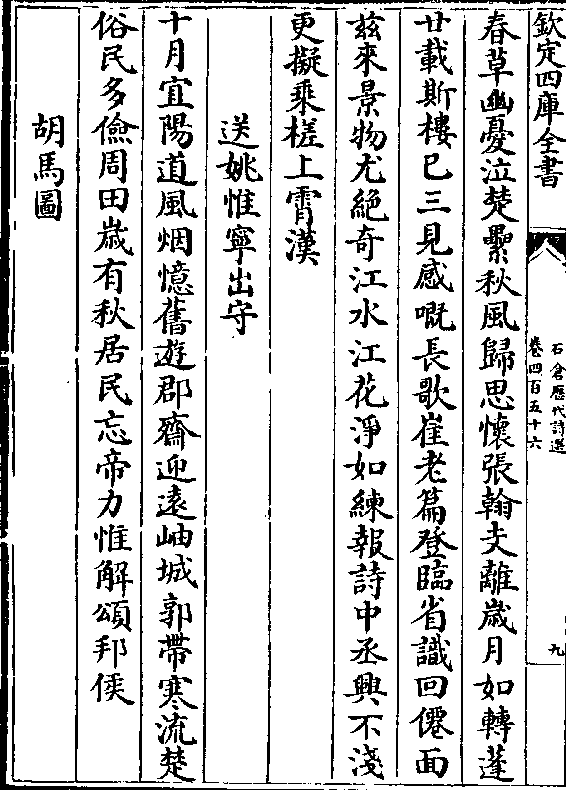 欽定四庫全書
石倉歷代詩選
卷四百五十六
九
春草幽憂泣楚纍秋風歸思懷張翰支離歲月如轉蓬
廿載斯樓已三見感嘅長歌崔老篇登臨省識回僊面
兹來景物尤絶奇江水江花淨如練報詩中丞興不淺
更擬乗槎上霄漢
送姚惟寧出守
十月宜陽道風烟憶舊遊郡齋迎逺岫城郭帶寒流楚
俗民多儉周田歲有秋居民忘帝力惟解頌邦侯
胡馬圖